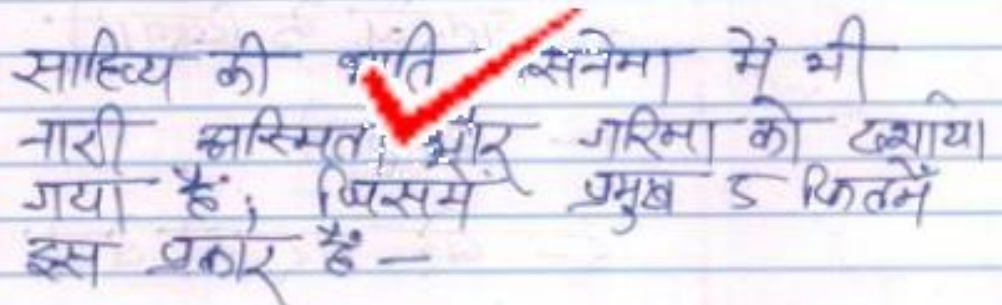 साहित्य की भांति सिनेमा में भी
नारी अस्मिता और गरिमा को दर्शाया
गया है, जिसमें प्रमुख 5 फिल्में
इस प्रकार हैं –